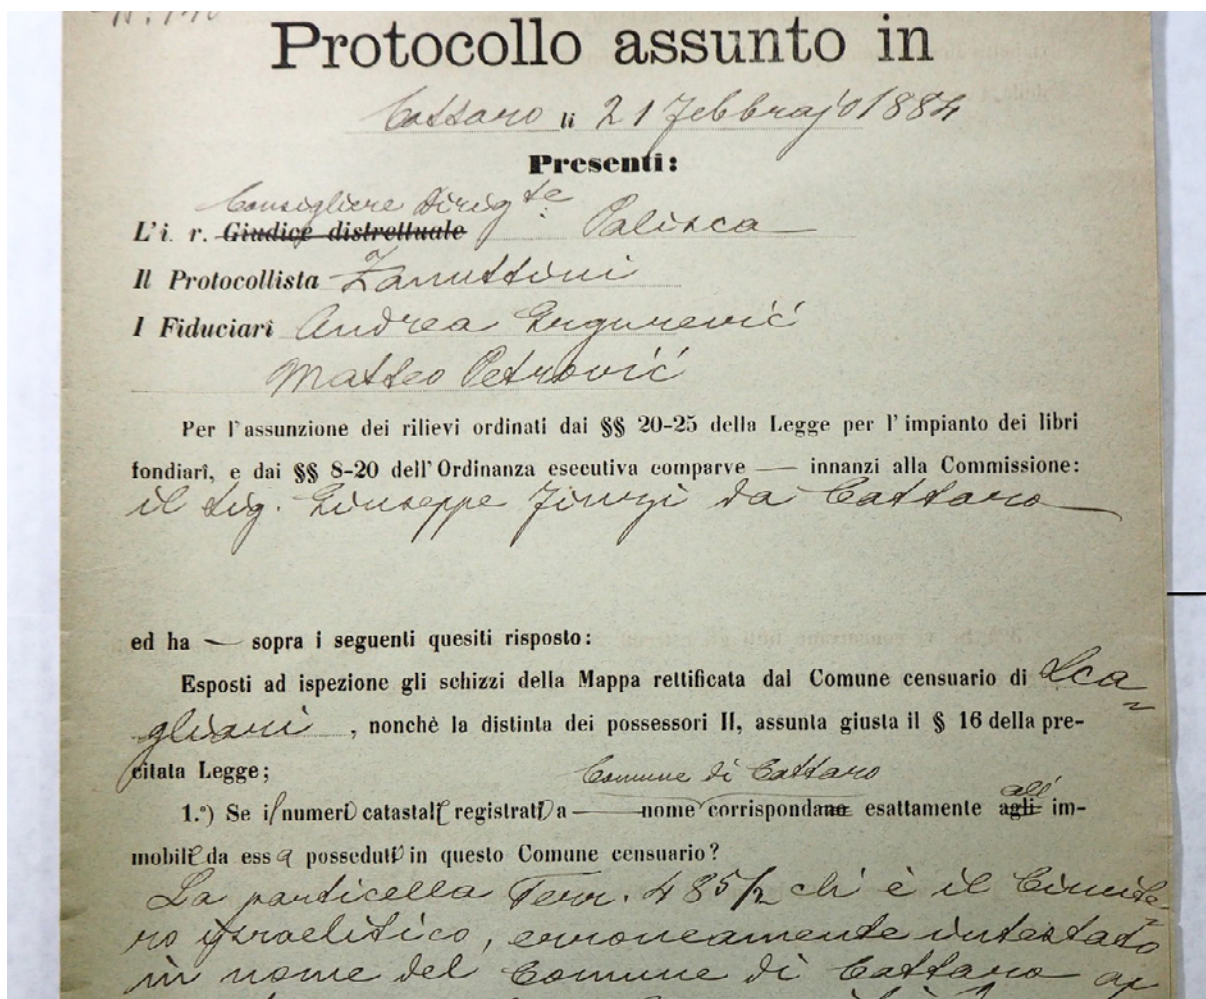 Protocollo assunto in
Cattaro li 21 Febbrajo 1884
Presenti:
Consigliere Dirigte
L'i. r. Giudice distrettuale Palisca
Il Protocollista Zanuttini
I Fiduciarî Andrea Gregurević
Matteo Petrović
Per l'assunzione dei rilievi ordinati dai §§ 20-25 della Legge per l'impianto dei libri
fondiarî, e dai §§ 8-20 dell'Ordinanza esecutiva comparve — innanzi alla Commissione:
il Sig. Giuseppe da Cattaro
ed ha — sopra i seguenti quesiti risposto:
Esposti ad ispezione gli schizzi della Mappa rettificata dal Comune censuario di Sca=
gliari, nonchè la distinta dei possessori II, assunta giusta il § 16 della pre-
citata Legge;
Comune di Cattaro
1.º) Se i numeri catastali registrati a — nome corrispondano esattamente agli all' im-
mobili da essa posseduti in questo Comune censuario?
La particella Terr. 485/2 ch' è il Cimite=
ro israelitico, erroneamente intestato
in nome del Comune di Cattaro ap